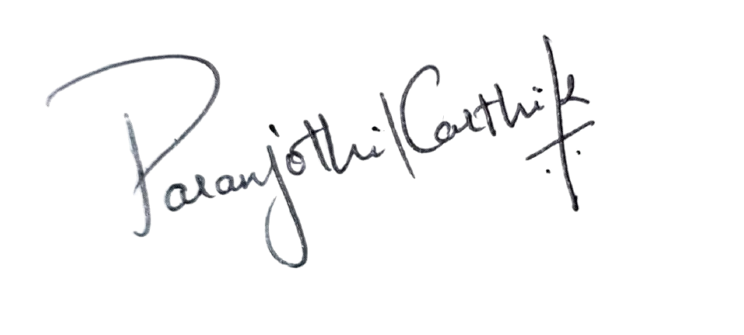 Paranjothi Karthik